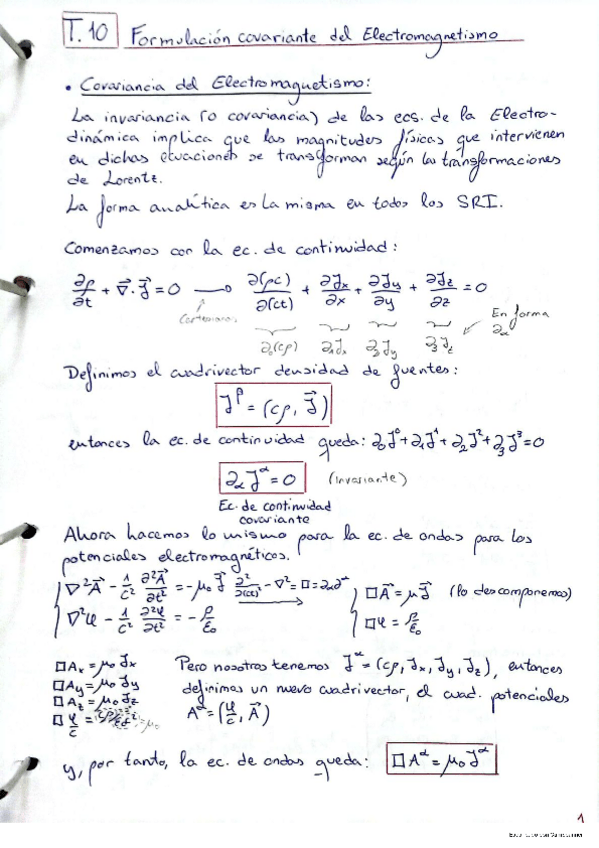 T.10 Formulación covariante del Electromagnetismo
• Covariancia del Electromagnetismo:
La invariancia (o covariancia) de las ecs. de la Electro-
dinámica implica que las magnitudes físicas que intervienen
en dichas ecuaciones se transforman según las transformaciones
de Lorentz.
La forma analítica es la misma en todos los SRI.
Comenzamos con la ec. de continuidad:
∂ρ/∂t + ∇⃗·J⃗ = 0 → ∂(ρc)/∂(ct) + ∂Jx/∂x + ∂Jy/∂y + ∂Jz/∂z = 0
Cartesianas
En forma ∂α
∂₀(cρ) ∂₁Jx ∂₂Jy ∂₃Jz
Definimos el cuadrivector densidad de fuentes:
J^β = (cρ, J⃗)
entonces la ec. de continuidad queda: ∂₀J⁰+∂₁J¹+∂₂J²+∂₃J³=0
∂αJ^α = 0 (invariante)
Ec. de continuidad
covariante
Ahora hacemos lo mismo para la ec. de ondas para los
potenciales electromagnéticos.
∇²A⃗ − 1/c² ∂²A⃗/∂t² = −μ₀J⃗ ∂²/∂(ct)² − ∇² = □ = ∂α∂^α → □A⃗ = μJ⃗ (lo descomponemos)
∇²φ − 1/c² ∂²φ/∂t² = −ρ/ε₀ □φ = ρ/ε₀
□Ax = μ₀Jx Pero nosotros tenemos J^α = (cρ, Jx, Jy, Jz), entonces
□Ay = μ₀Jy definimos un nuevo cuadrivector, el cuad. potenciales
□Az = μ₀Jz A^α = (φ/c, A⃗)
□φ/c =
y, por tanto, la ec. de ondas queda: □A^α = μ₀J^α
1